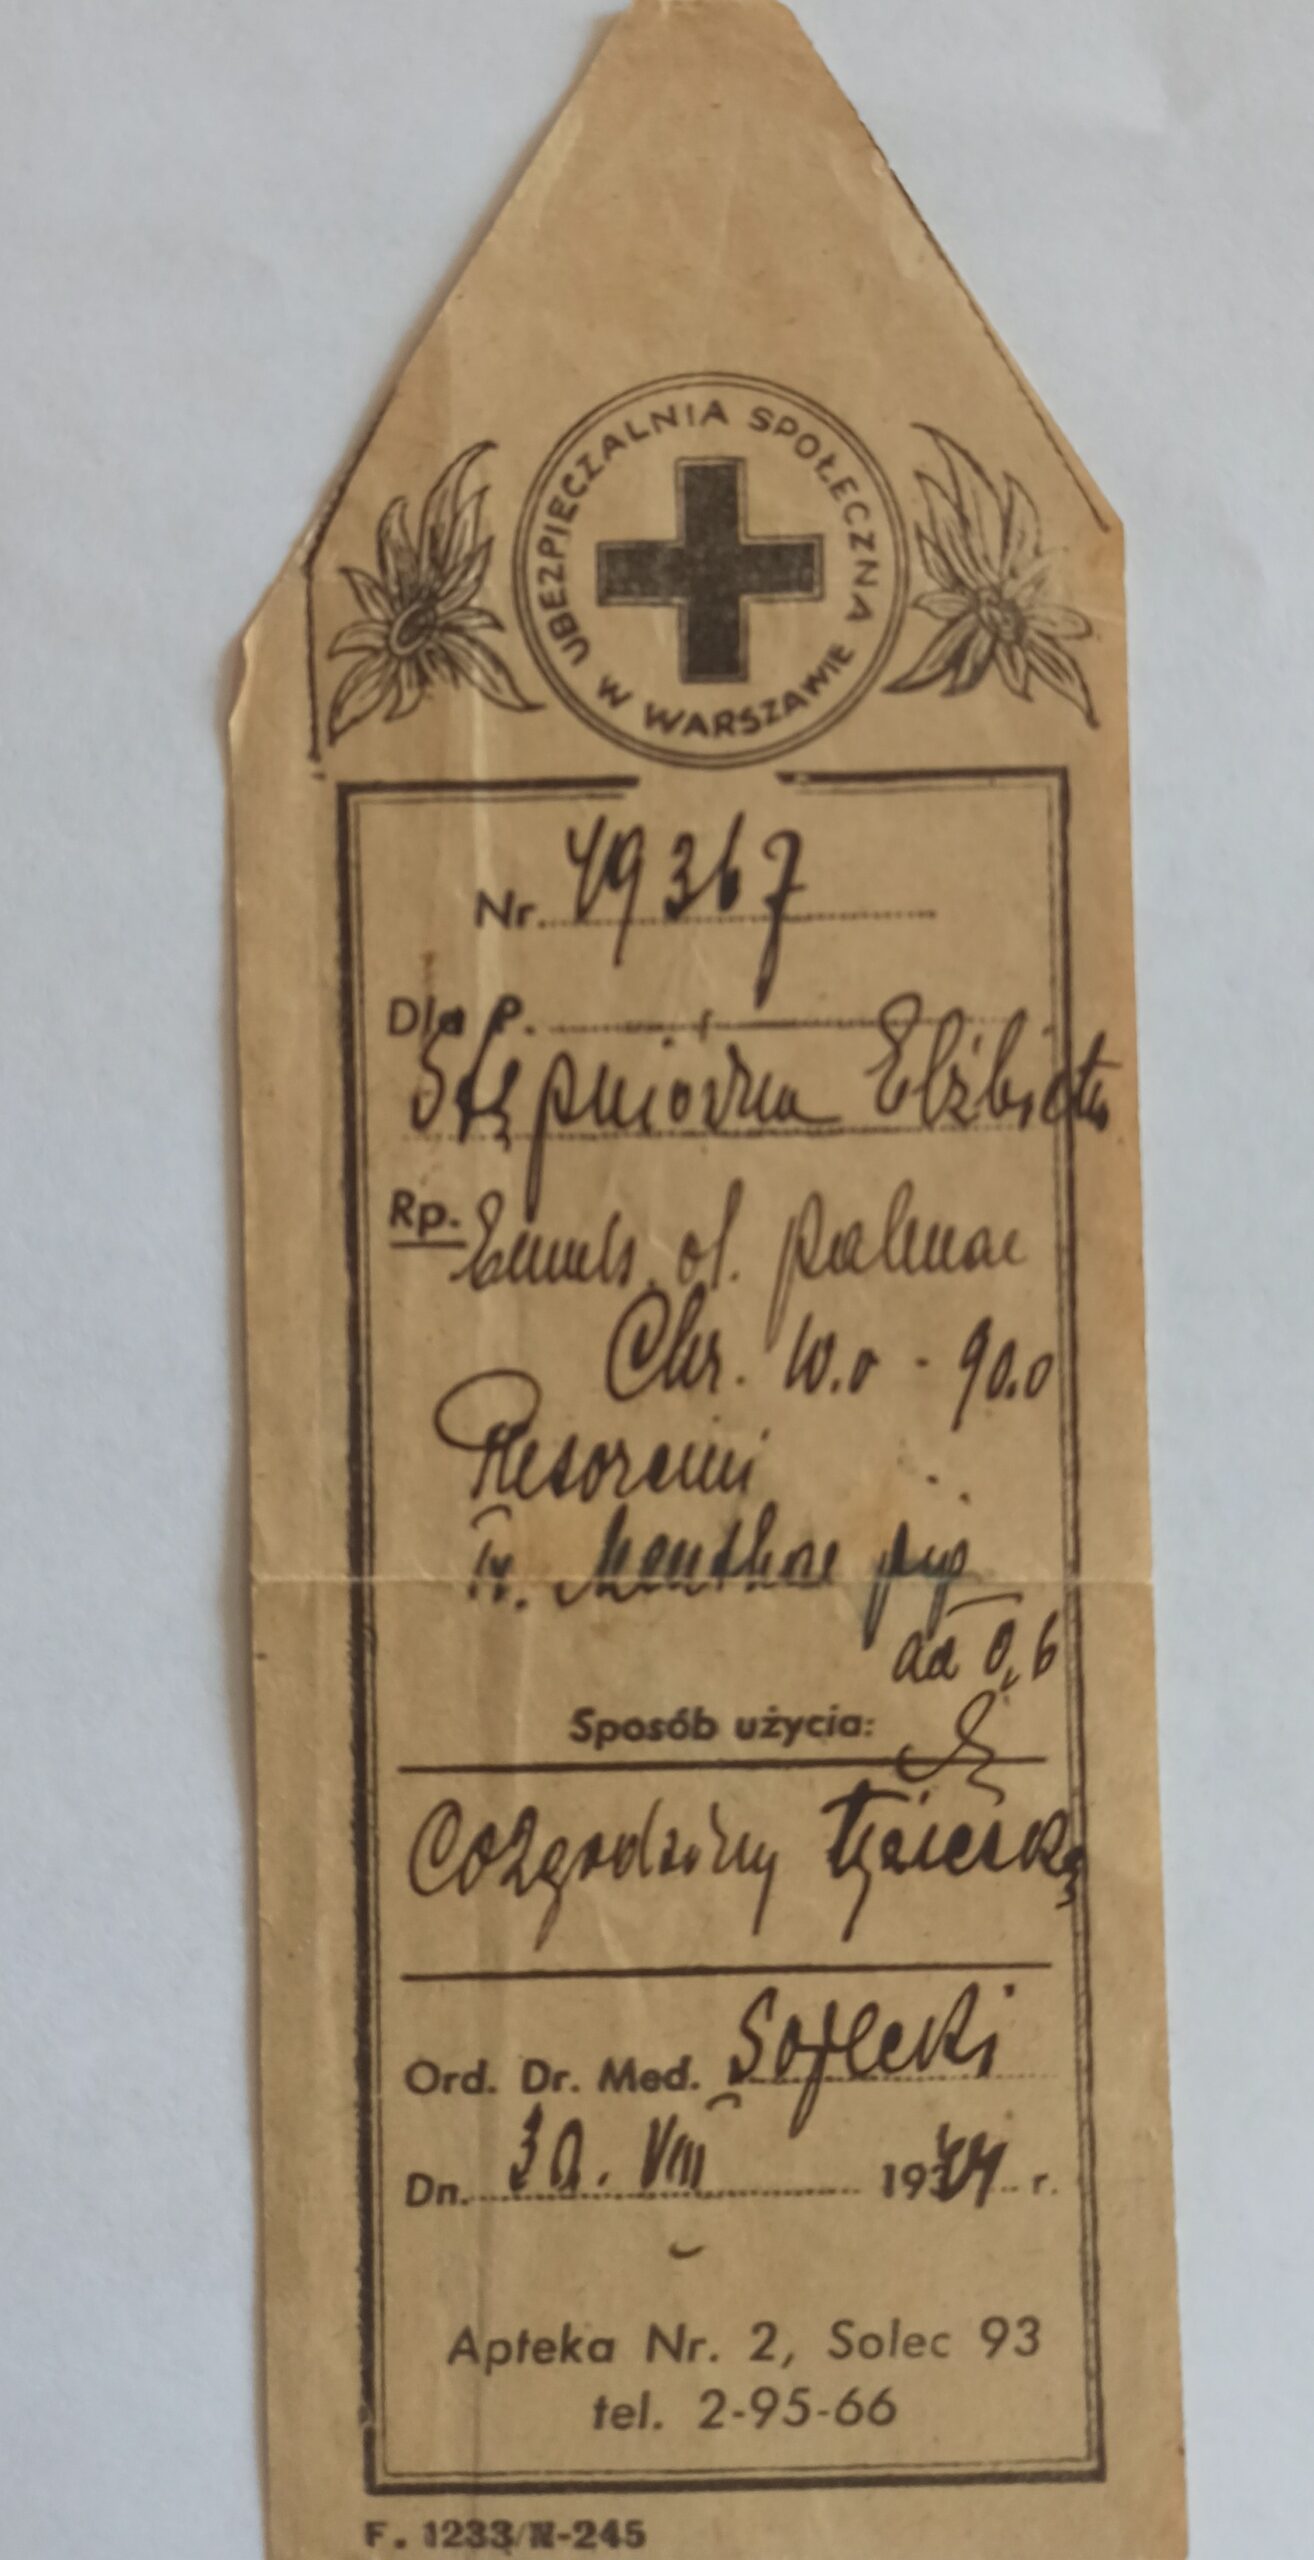 UBEZPIECZALNIA SPOŁECZNA
W WARSZAWIE
Nr. 49367
Dla P.
Elżbieta
Rp. Emuls. ol.
10.0 - 90.0
Resorcini
Menthae pip
aa 0,6
Sposób użycia:
Co 2 godziny łyżeczkę
Ord. Dr. Med.
Dn. 30. VIII 1944 r.
Apteka Nr. 2, Solec 93
tel. 2-95-66
F. 1233/N-245